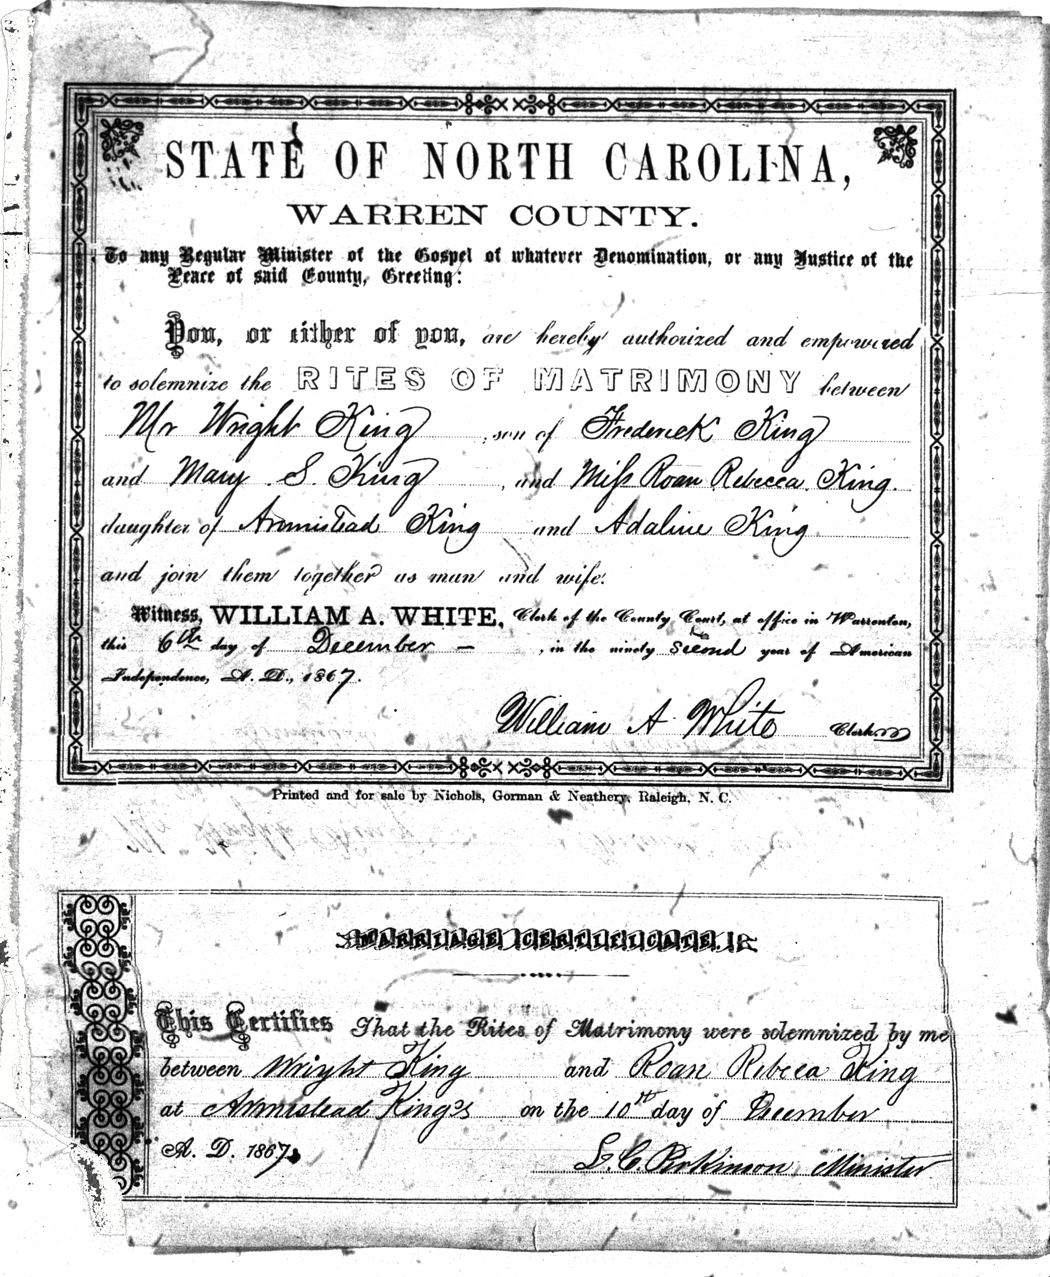 STATE OF NORTH CAROLINA,
WARREN COUNTY.
To any Regular Minister of the Gospel of whatever Denomination, or any Justice of the
Peace of said County, Greeting:
You, or either of you, are hereby authorized and empowered
to solemnize the RITES OF MATRIMONY between
Mr Wright King , son of Frederick King
and Mary S. King , and Miss Roan Rebecca King.
daughter of Armistead King and Adaline King
and join them together as man and wife.
Witness, WILLIAM A. WHITE, Clerk of the County Court, at office in Warrenton,
this 6th day of December – , in the ninety second year of American
Independence, A. D., 1867.
William A White Clerk
Printed and for sale by Nichols, Gorman & Neathery, Raleigh, N. C.
MARRIAGE CERTIFICATE.
This Certifies That the Rites of Matrimony were solemnized by me
between Wright King and Roan Rebeca King
at Armistead King's on the 10th day of December
A. D. 1867
L. C. Perkinson Minister